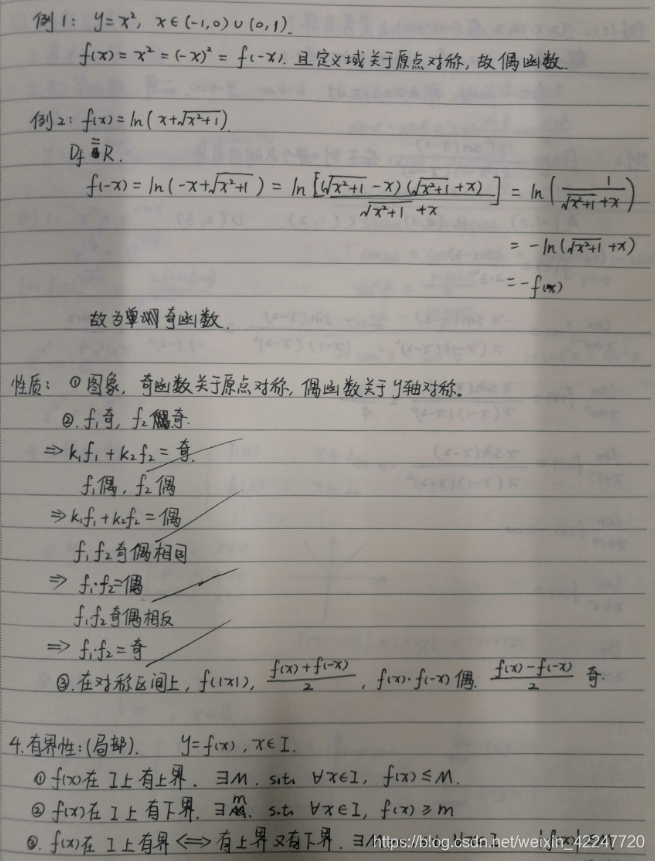 例1: y=x², x∈(-1,0)∪(0,1).
f(x)=x²=(-x)²=f(-x). 且定义域关于原点对称,故偶函数.
例2: f(x)=ln(x+√(x²+1))
Df=R.
f(-x)=ln(-x+√(x²+1))=ln[(√(x²+1)-x)(√(x²+1)+x)/(√(x²+1)+x)]=ln(1/(√(x²+1)+x))
=-ln(√(x²+1)+x)
=-f(x)
故为奇函数.
性质: ①图象,奇函数关于原点对称,偶函数关于y轴对称。
②. f₁奇, f₂奇.
⇒k₁f₁+k₂f₂=奇.
f₁偶, f₂偶
⇒k₁f₁+k₂f₂=偶
f₁f₂奇偶相同
⇒ f₁·f₂=偶
f₁f₂奇偶相反
⇒ f₁·f₂=奇
③.在对称区间上, f(|x|), (f(x)+f(-x))/2, f(x)·f(-x)偶. (f(x)-f(-x))/2 奇.
4.有界性:(局部). y=f(x), x∈I.
①f(x)在I上有上界. ∃M. s.t. ∀x∈I, f(x)≤M.
②f(x)在I上有下界. ∃m. s.t. ∀x∈I, f(x)≥m
③. f(x)在I上有界⇔有上界又有下界. ∃M
https://blog.csdn.net/weixin_42247720